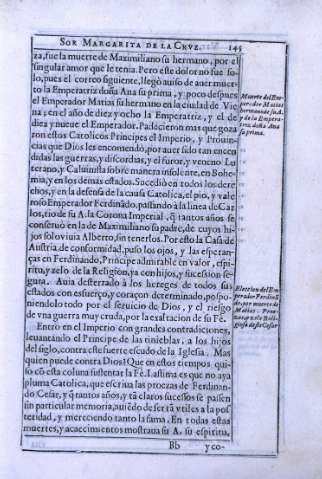 SOR MARGARITA DE LA CRVZ.
145
za, fue la muerte de Maximiliano su hermano, por el
singular amor que le tenia. Pero este dolor no fue so-
lo, pues el correo siguiente, llegò auiso de auer muer-
to la Emperatriz doña Ana su prima, y poco despues
el Emperador Matias su hermano en la ciudad de Vie
na; en el año de diez y ocho la Emperatriz, y el de
diez y nueue el Emperador. Padecieron mas que goza
ron estos Catolicos Principes el Imperio, y Prouin-
cias que Dios les encomendò, por auer sido tan encen
didas las guerras, y discordias, y el furor, y veneno Lu
terano, y Caluinista sobre manera insolente, en Bohe-
mia, y en los demas estados. Sucediò en todos los dere
chos, y en la defensa de la causa Catolica, el pio, y vale
roso Emperador Ferdinãdo, passando à la linea de Car
los, tio de su A. la Corona Imperial, q̃ tantos años se
conseruò en la de Maximiliano su padre, de cuyos hi-
jos solo viuia Alberto, sin tenerlos. Por esto la Casa de
Austria de conformidad, puso los ojos, y las esperan-
ças en Ferdinando, Principe admirable en valor, espi-
ritu, y zelo de la Religion, ya con hijos, y sucession se-
gura. Auia desterrado à los hereges de todos sus
estados con esfuerço, y coraçon determinado, pospo-
niendolo todo por el seruicio de Dios, y el riesgo
de vna guerra muy cruda, por la exaltacion de su Fè.
Entrò en el Imperio con grandes contradiciones,
leuantando el Principe de las tinieblas, a los hijos
del siglo, contra este fuerte escudo de la Iglesia. Mas
quien puede contra Dios? Que en estos tiempos qui-
so cõ esta coluna sustentar la Fè. Lastima es que no aya
pluma Catolica, que escriua las proezas de Ferdinan-
do Cesar, y q̃ tantos años, y tã claros sucessos se passen
sin particular memoria, auiẽdo de ser tã vtiles a la pos-
teridad, y mereciendo tanto la fama. En todas estas
muertes, y acaecimientos mostraua su A. su espiritu,
Bb
y co-
Muerte del Em-
perador Matias
hermano de su A.
y de la Empera-
triz doña Ana
su prima.
Eleccion del Em-
perador Ferdinã-
do, por muerte de
Matias.